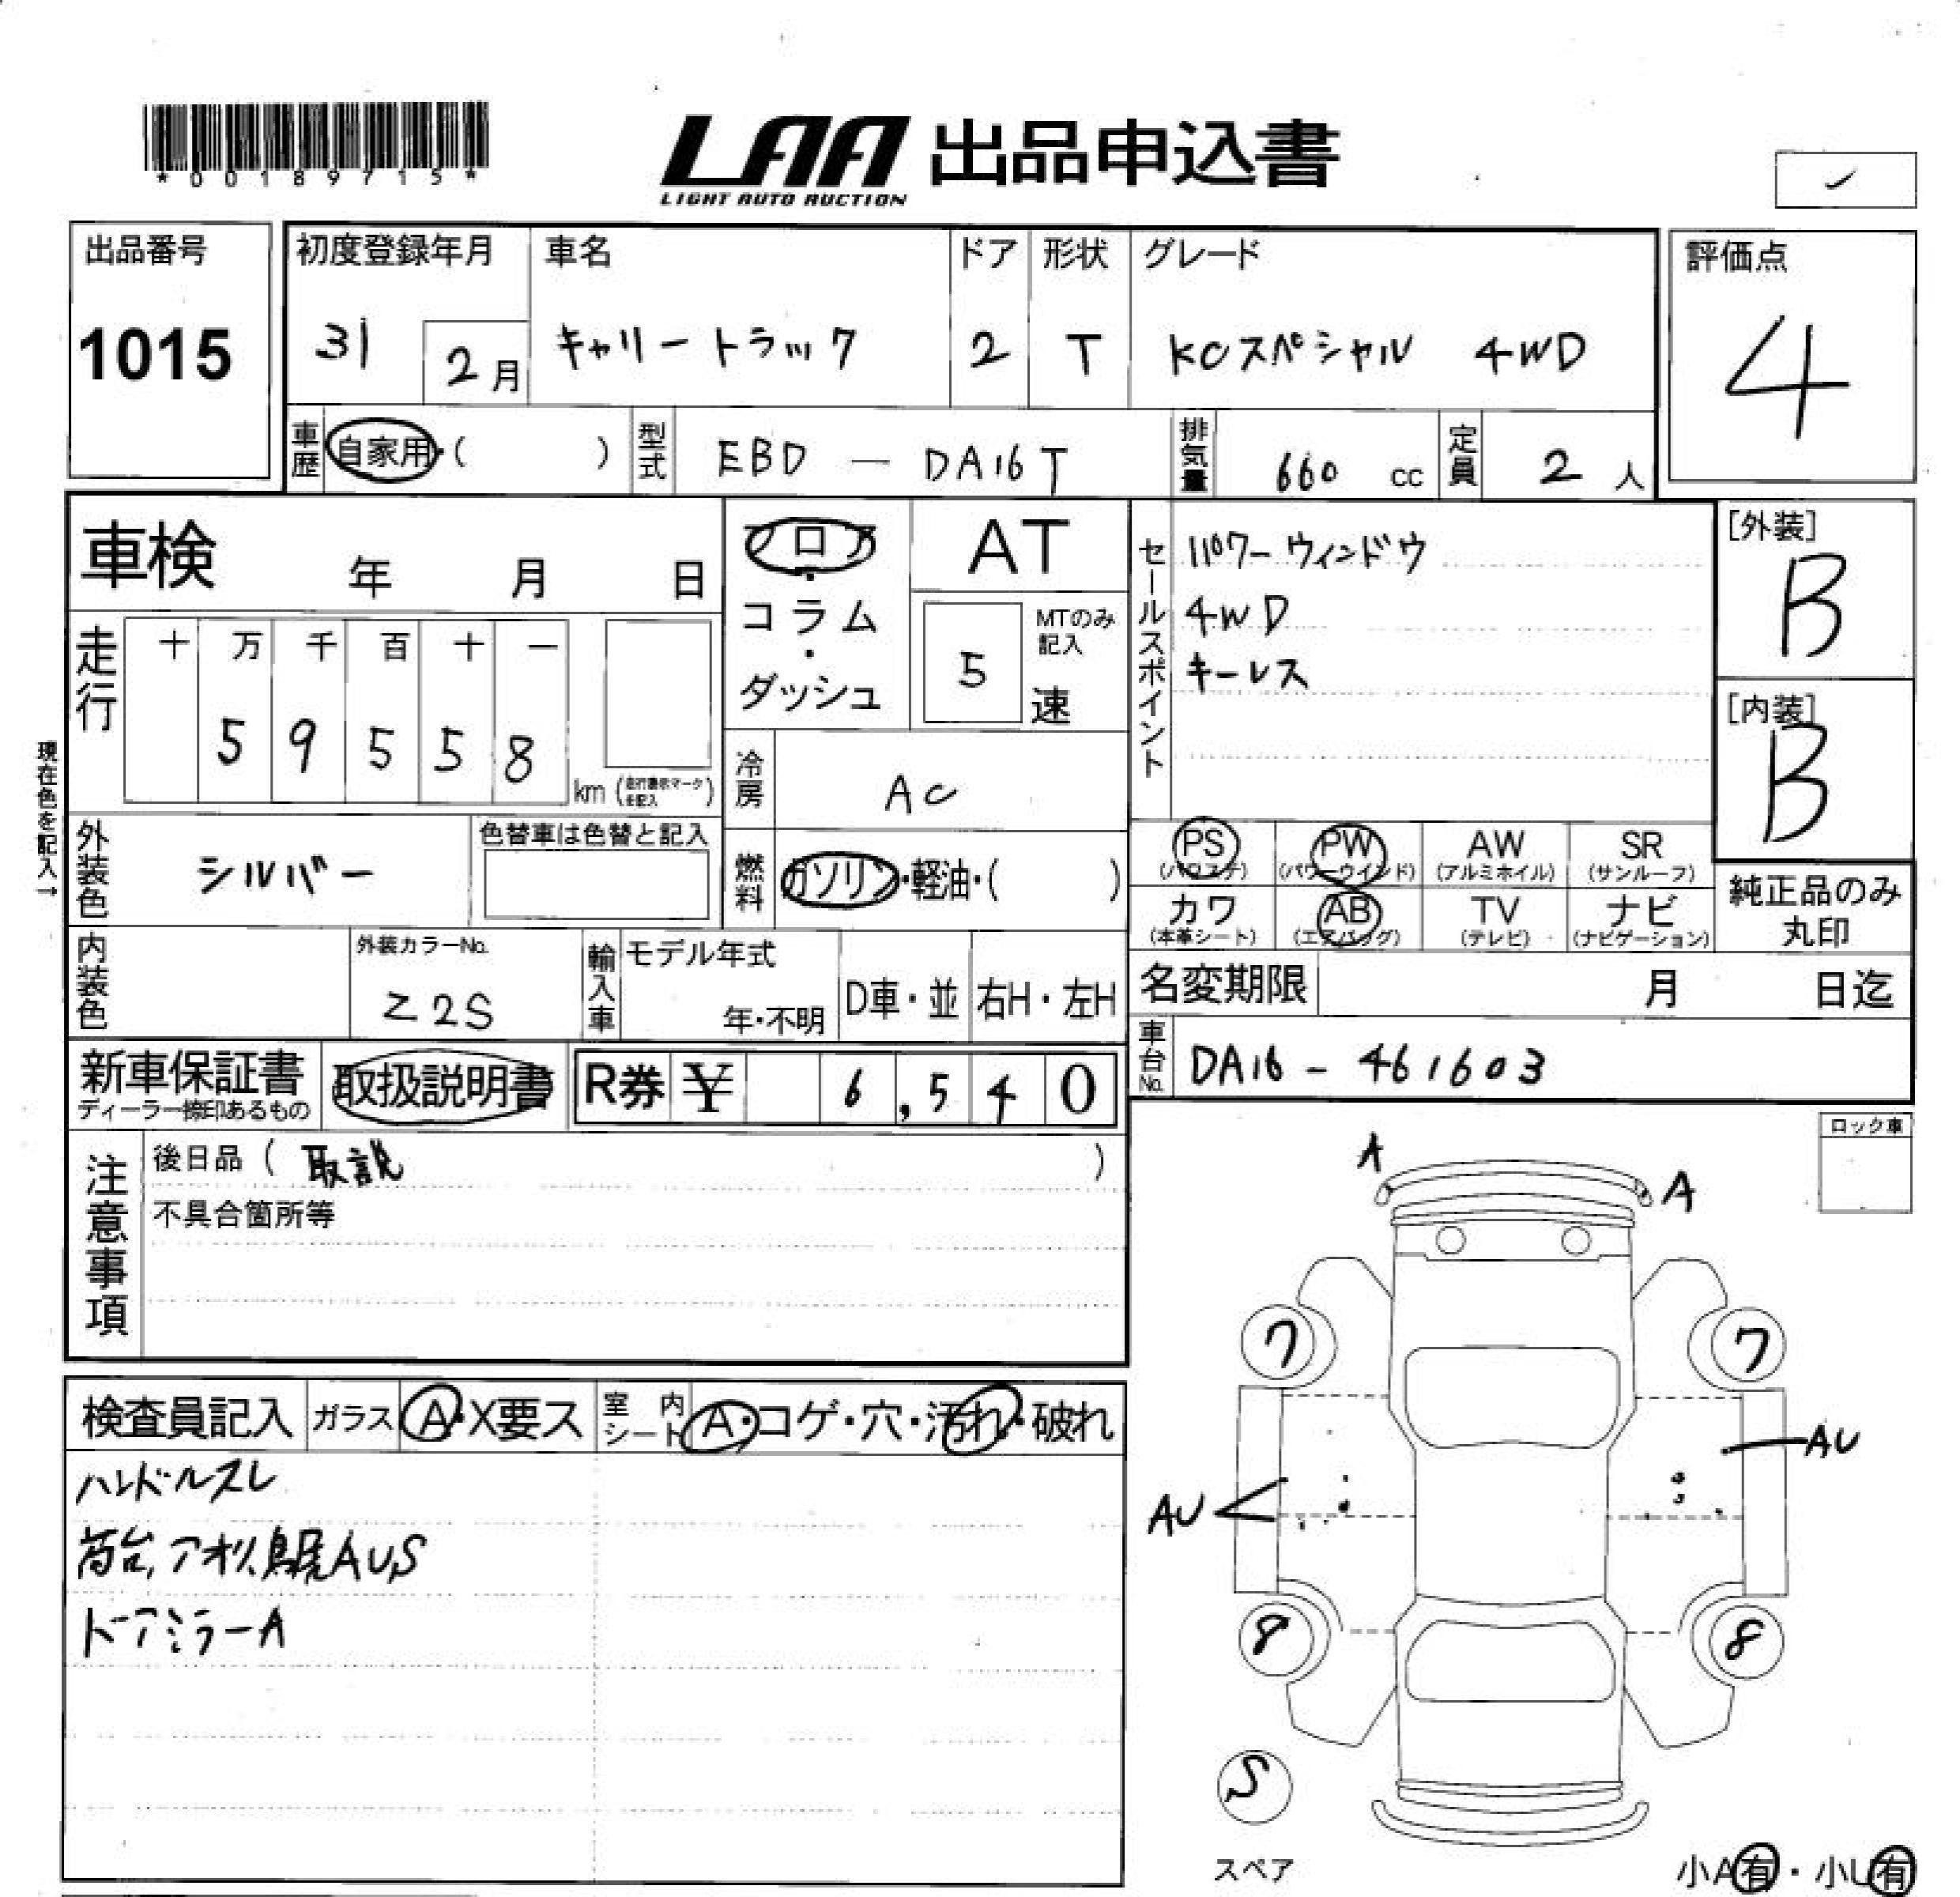 *00189715*
LAA 出品申込書
LIGHT AUTO AUCTION
出品番号
1015
初度登録年月
31 2月
車名
キャリートラック
ドア
2
形状
T
グレード
KCスペシャル 4WD
評価点
4
車歴 自家用・( )
型式 EBD — DA16T
排気量 660 cc
定員 2 人
車検 年 月 日
フロア・コラム・ダッシュ
AT
5
MTのみ記入
速
セールスポイント
パワーウィンドウ
4WD
キーレス
[外装]
B
[内装]
B
走行
十 万 千 百 十 一
5 9 5 5 8
km (走行表示マークを記入)
冷房 AC
現在色を記入→
外装色 シルバー
色替車は色替と記入
燃料 ガソリン・軽油・( )
PS (パワステ)
PW (パワーウインド)
AW (アルミホイル)
SR (サンルーフ)
カワ (本革シート)
AB (エアバッグ)
TV (テレビ)
ナビ (ナビゲーション)
純正品のみ丸印
内装色
外装カラーNo.
Z2S
輸入車
モデル年式
年・不明
D車・並
右H・左H
名変期限 月 日迄
車台No. DA16 - 461603
新車保証書
ディーラー捺印あるもの
取扱説明書
R券 ¥ 6,540
注意事項
後日品 ( 取説 )
不具合箇所等
ロック車
A
A
7
7
AU
AU
8
8
S
スペア
小A有・小U有
検査員記入
ガラス A・X要ス
室内シート A・コゲ・穴・汚れ・破れ
ハンドルスレ
荷台,アオリ,鳥居AUS
ドアミラーA